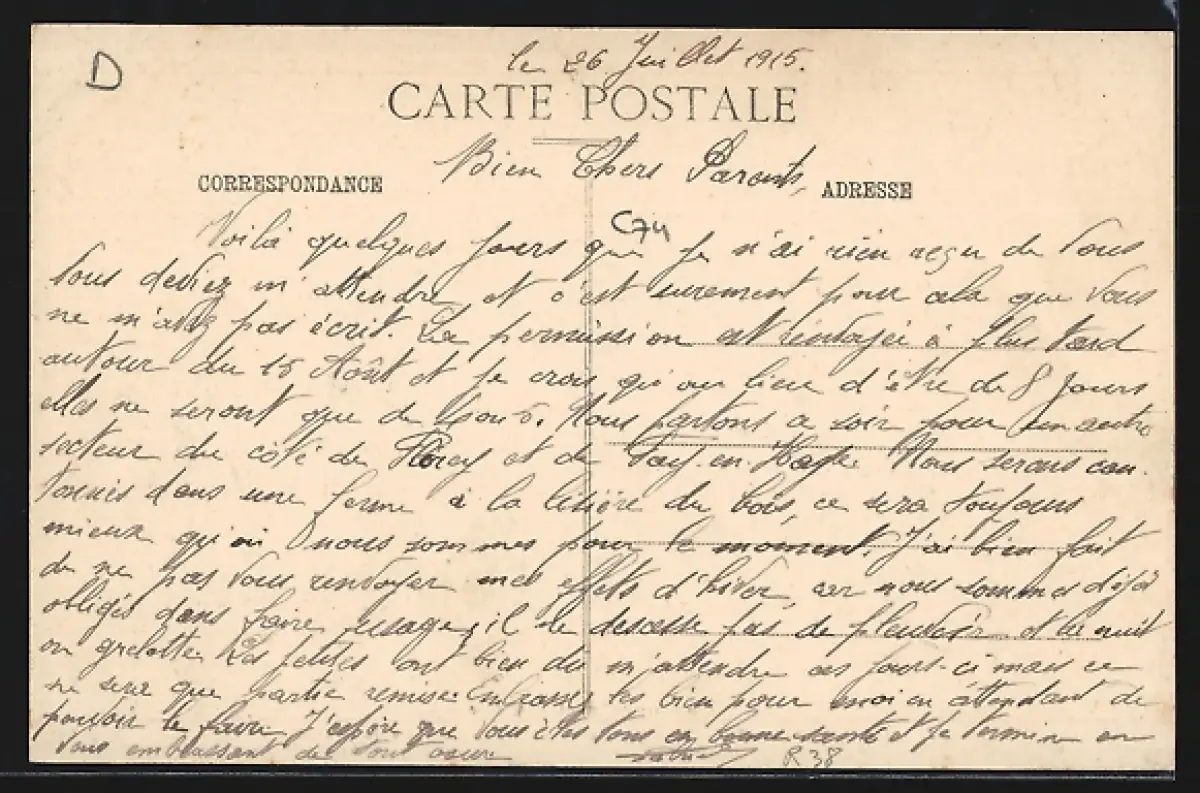 D
le 26 Juillet 1915.
CARTE POSTALE
Bien Chers Parents,
CORRESPONDANCE
ADRESSE
C74
Voilà quelques jours que je n'ai rien reçu de vous
vous deviez m'attendre et c'est surement pour cela que vous
ne m'avez pas écrit. La permission est renvoyée à plus tard
autour du 15 Août et je crois qu'au lieu d'être de 8 jours
elles ne seront que de 4 ou 5. Nous partons ce soir pour un autre
secteur du côté de et de en Haye. Nous serons can-
tonnés dans une ferme à la lisière du bois, ce sera toujours
mieux qu'où nous sommes pour le moment. J'ai bien fait
de ne pas vous renvoyer mes effets d'hiver, car nous sommes déjà
obligés dans faire usage, il ne descesse pas de pleuvoir et la nuit
on grelotte. Les petites ont bien du m'attendre ces jours-ci mais ce
ne sera que partie remise. Embrassez les bien pour moi en attendant de
pouvoir le faire. J'espère que vous êtes tous en bonne santé et je termine en
vous embrassant de tout coeur
R38